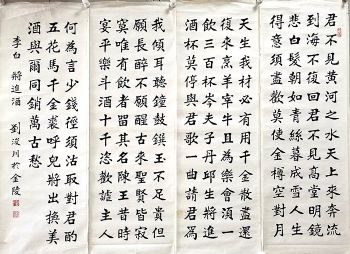 君不見黃河之水天上來奔流
到海不復回君不見高堂明鏡
悲白髮朝如青絲暮成雪人生
得意須盡歡莫使金樽空對月
天生我材必有用千金散盡還
復來烹羊宰牛且為樂會須一
飲三百杯岑夫子丹丘生將進
酒杯莫停與君歌一曲請君爲
我傾耳聽鐘鼓饌玉不足貴但
願長醉不願醒古來聖賢皆寂
寞唯有飲者留其名陳王昔時
宴平樂斗酒十千恣歡謔主人
何為言少錢徑須沽取對君酌
五花馬千金裘呼兒將出換美
酒與爾同銷萬古愁
李白 將進酒 劉 川於金陵